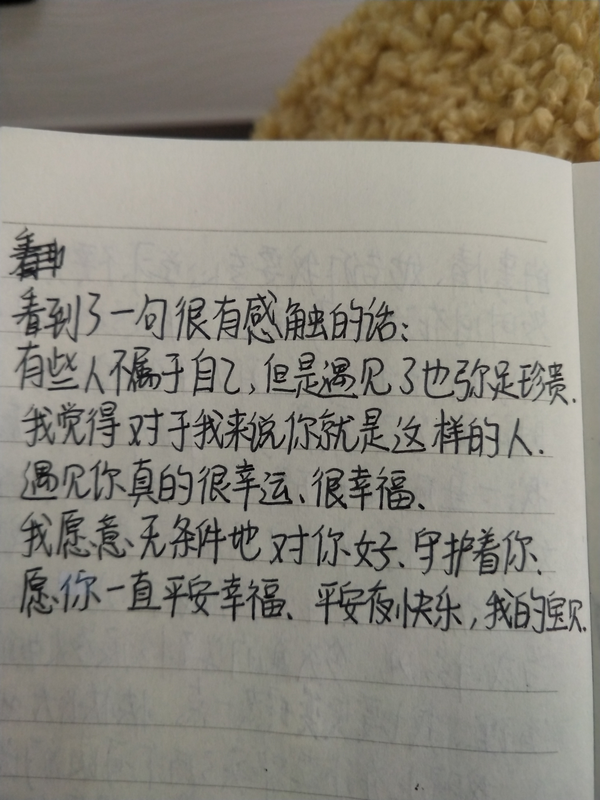 看到了一句很有感触的话：
有些人不属于自己，但是遇见了也弥足珍贵.
我觉得对于我来说你就是这样的人.
遇见你真的很幸运、很幸福、
我愿意无条件地对你好、守护着你、
愿你一直平安幸福、平安夜快乐，我的宝贝.